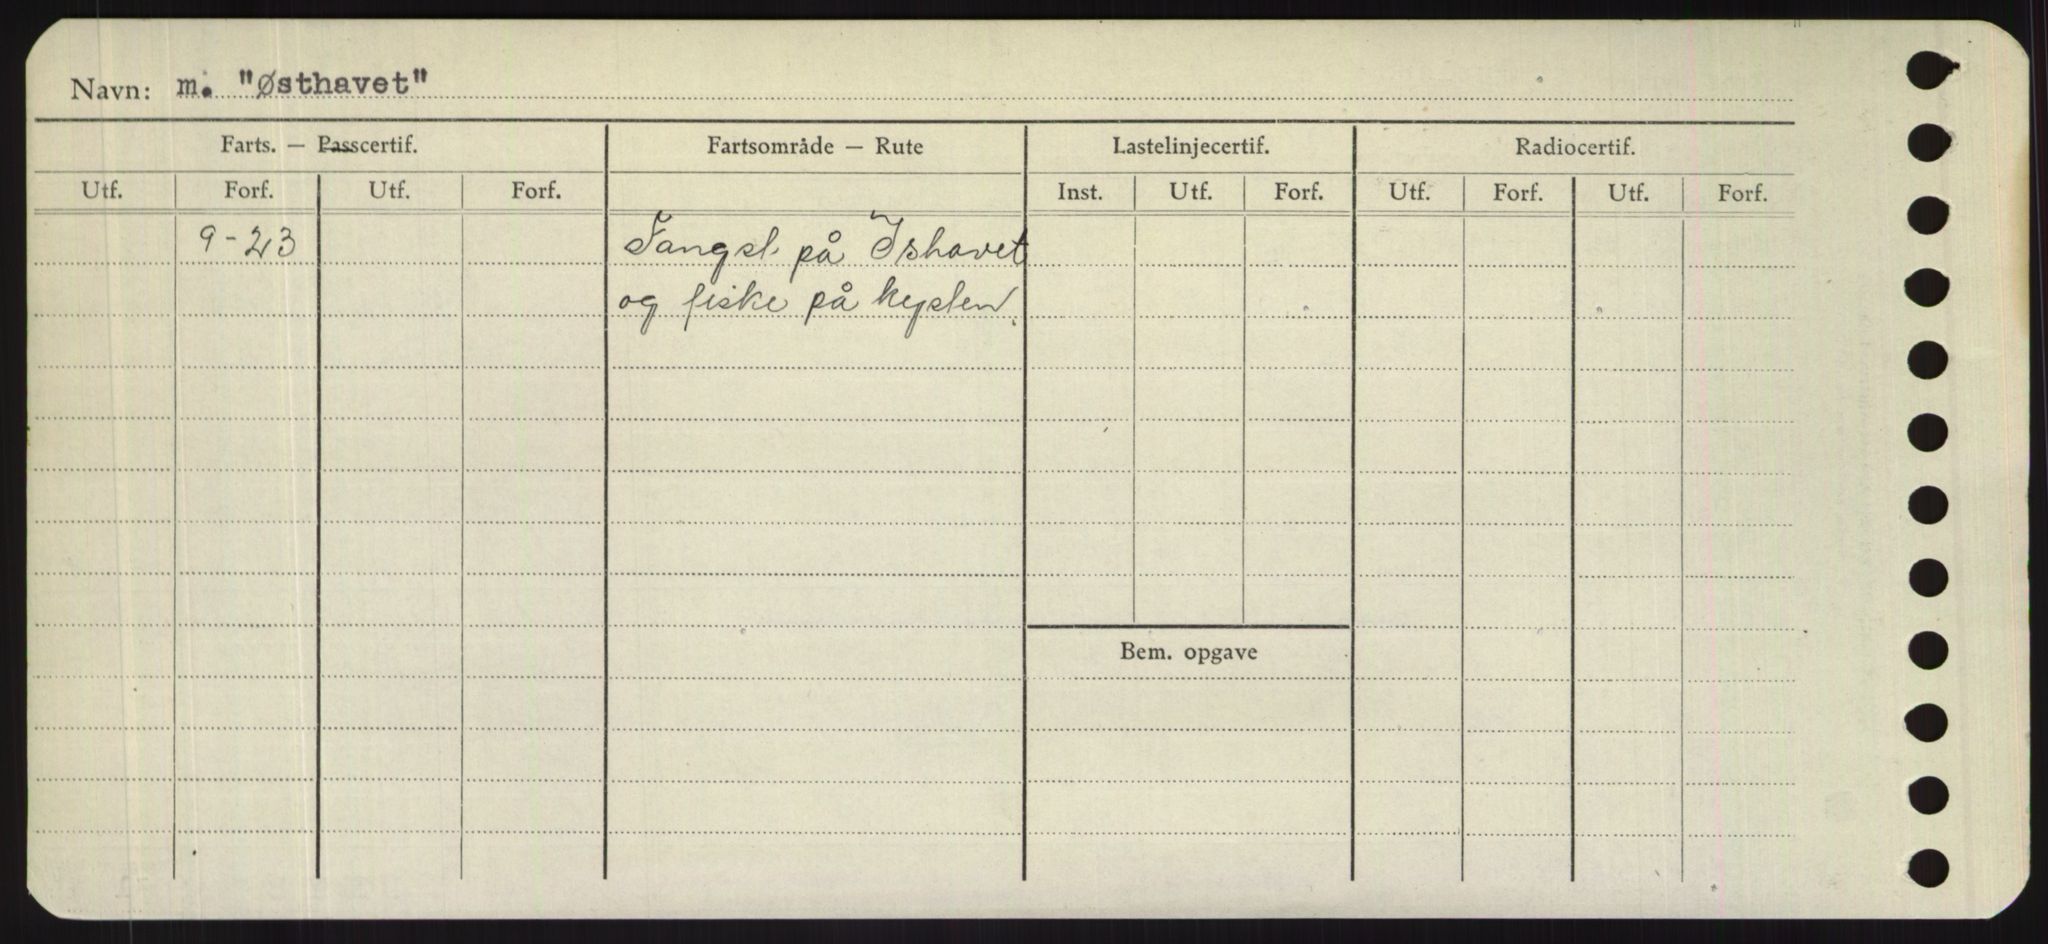 Navn: m. "Østhavet"
Farts. — Passcertif. Fartsområde — Rute Lastelinjecertif. Radiocertif.
Utf. Forf. Utf. Forf. Inst. Utf. Forf. Utf. Forf. Utf. Forf.
9-23 Fangst på Ishavet
og fiske på kysten.
Bem. opgave